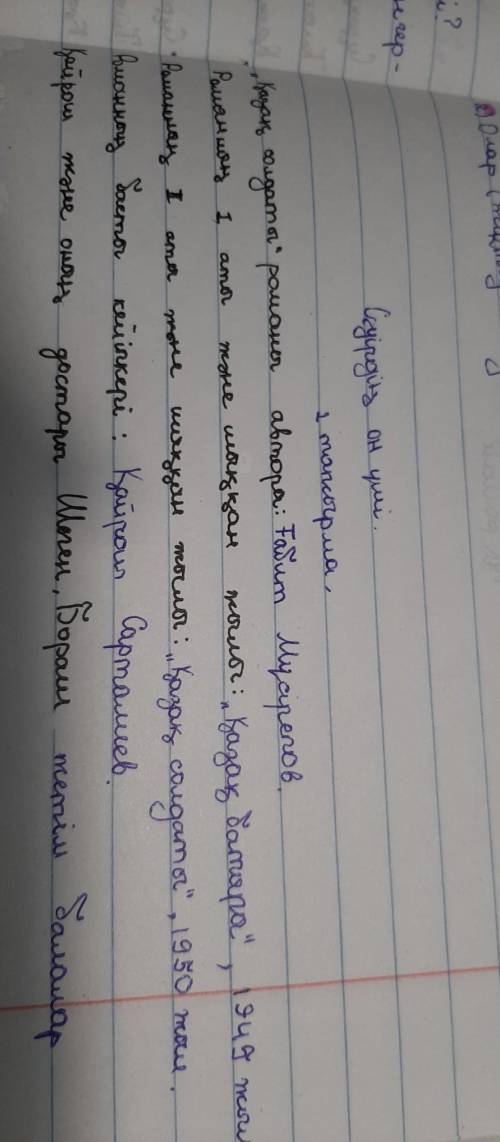 Сәуірдің он үші.
1 тапсырма.
"Қазақ солдаты" романы авторы: Ғабит Мүсірепов.
Романның I аты және шыққан жылы: "Қазақ батыры", 1949 жыл
Романның II аты және шыққан жылы: "Қазақ солдаты", 1950 жыл.
Романның басты кейіпкері: Қайрош Сарталиев.
Қайрош және оның достары Шеген, Бораш жетім балалар